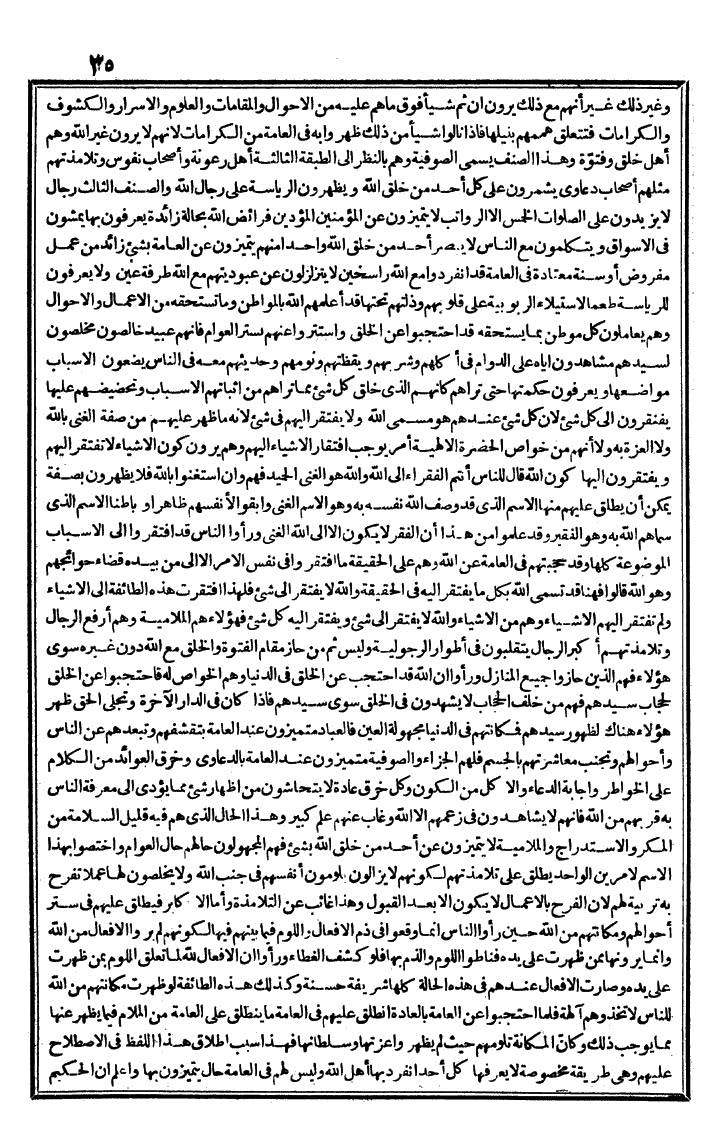 ٣٥
وغير ذلك غير أنهم مع ذلك يرون ان ثم شيأ فوق ماهم عليه من الاحوال والمقامات والعلوم والاسرار والكشوف
والكرامات فتتعلق هممهم بنيلها فاذا نالوا شيأ من ذلك ظهروا به فى العامة من الكرامات لانهم لا يرون غير الله وهم
أهل خلق وفتوّة وهذا الصنف يسمى الصوفية وهم بالنظر الى الطبقة الثالثة أهل رعونة وأصحاب نفوس وتلامذتهم
مثلهم أصحاب دعاوى يشمرون على كل أحد من خلق الله ويظهرون الرياسة على رجال الله والصنف الثالث رجال
لا يزيدون على الصلوات الخمس الا الرواتب لا يتميزون عن المؤمنين المؤدين فرائض الله بحالة زائدة يعرفون بها يمشون
فى الاسواق ويتكلمون مع الناس لا يبصر أحد من خلق الله واحدا منهم يتميزون عن العامة بشئ زائد من عمل
مفروض أو سنة معتادة فى العامة قد انفردوا مع الله راسخين لا يتزلزلون عن عبوديتهم مع الله طرفة عين ولا يعرفون
للرياسة طعما لاستيلاء الربوبية على قلوبهم وذلتهم تحتها قد أعلمهم الله بالمواطن وما تستحقه من الاعمال والاحوال
وهم يعاملون كل موطن بما يستحقه قد احتجبوا عن الخلق واستتروا عنهم بستر العوام فانهم عبيد خالصون مخلصون
لسيدهم مشاهدون اياه على الدوام فى أكلهم وشربهم ويقظتهم ونومهم وحديثهم معه فى الناس يضعون الاسباب
مواضعها ويعرفون حكمتها حتى تراهم كأنهم الذى خلق كل شئ مما تراهم من اثباتهم الاسباب وتحضيضهم عليها
يفتقرون الى كل شئ لان كل شئ عندهم هو مسمى الله ولا يفتقر اليهم فى شئ لانه ما ظهر عليهم من صفة الغنى بالله
ولا العزة به ولا أنهم من خواص الحضرة الالهية أمر يوجب افتقار الاشياء اليهم وهم يرون كون الاشياء لا تفتقر اليهم
ويفتقرون اليها كون الله قال للناس أنتم الفقراء الى الله والله هو الغنى الحميد فهم وان استغنوا بالله فلا يظهرون بصفة
يمكن أن يطلق عليهم منها الاسم الذى قد وصف الله نفسه به وهو الاسم الغنى وابقوا لأنفسهم ظاهرا وباطنا الاسم الذى
سماهم الله به وهو الفقير وقد علموا من هذا أن الفقر لا يكون الا الى الله الغنى ورأوا الناس قد افتقروا الى الاسباب
الموضوعة كلها وقد حجبتهم فى العامة عن الله وهم على الحقيقة ما افتقروا فى نفس الامر الا الى من بيده قضاء حوائجهم
وهو الله قالوا فهنا قد تسمى الله بكل ما يفتقر اليه فى الحقيقة والله لا يفتقر الى شئ فلهذا افتقرت هذه الطائفة الى الاشياء
ولم تفتقر اليهم الاشياء وهم من الاشياء والله لا يفتقر الى شئ ويفتقر اليه كل شئ فهؤلاء هم الملامية وهم أرفع الرجال
وتلامذتهم أكبر الرجال يتقلبون فى أطوار الرجولية وليس ثم من حاز مقام الفتوة والخلق مع الله دون غيره سوى
هؤلاء فهم الذين حازوا جميع المنازل ورأوا ان الله قد احتجب عن الخلق فى الدنيا وهم الخواص له فاحتجبوا عن الخلق
لحجاب سيدهم فهم من خلف الحجاب لا يشهدون فى الخلق سوى سيدهم فاذا كان فى الدار الآخرة وتجلى الحق ظهر
هؤلاء هناك لظهور سيدهم فمكانتهم فى الدنيا مجهولة العين فالعباد متميزون عند العامة بتقشفهم وتبعدهم عن الناس
وأحوالهم وتجنب معاشرتهم بالجسم فلهم الجزاء والصوفية متميزون عند العامة بالدعاوى وخرق العوائد من الكلام
على الخواطر واجابة الدعاء والاكل من الكون وكل خرق عادة لا يتحاشون من اظهار شئ مما يؤدى الى معرفة الناس
به قربهم من الله فانهم لا يشاهدون فى زعمهم الا الله وغاب عنهم علم كبير وهذا الحال الذى هم فيه قليل السلامة من
المكر والاستدراج والملامية لا يتميزون عن أحد من خلق الله بشئ فهم المجهولون حالهم حال العوام واختصوا بهذا
الاسم لامرين الواحد يطلق على تلامذتهم لكونهم لا يزالون يلومون أنفسهم فى جنب الله ولا يخلصون لها عملا تفرح
به تربية لهم لان الفرح بالاعمال لا يكون الا بعد القبول وهذا غائب عن التلامذة وأما الاكابر فيطلق عليهم فى ستر
أحوالهم ومكانتهم من الله حين رأوا الناس انما وقعوا فى ذم الافعال واللوم فيما بينهم فيها لكونهم لم يروا الافعال من الله
وانما يرونها ممن ظهرت على يده فناطوا اللوم والذم بها فلو كشف الغطاء ورأوا ان الافعال لله لما تعلق اللوم بمن ظهرت
على يده وصارت الافعال عندهم فى هذه الحالة كلها شريفة حسنة وكذلك هذه الطائفة لو ظهرت مكانتهم من الله
للناس لاتخذوهم آلهة فلما احتجبوا عن العامة بالعادة انطلق عليهم فى العامة ما ينطلق على العامة من الملام فيما يظهر عنها
مما يوجب ذلك وكأن المكانة تلومهم حيث لم يظهروا عزتها وسلطانها فهذا سبب اطلاق هذا اللفظ فى الاصطلاح
عليهم وهى طريقة مخصوصة لا يعرفها كل أحد انفرد بها أهل الله وليس لهم فى العامة حال يتميزون بها واعلم ان الحكيم